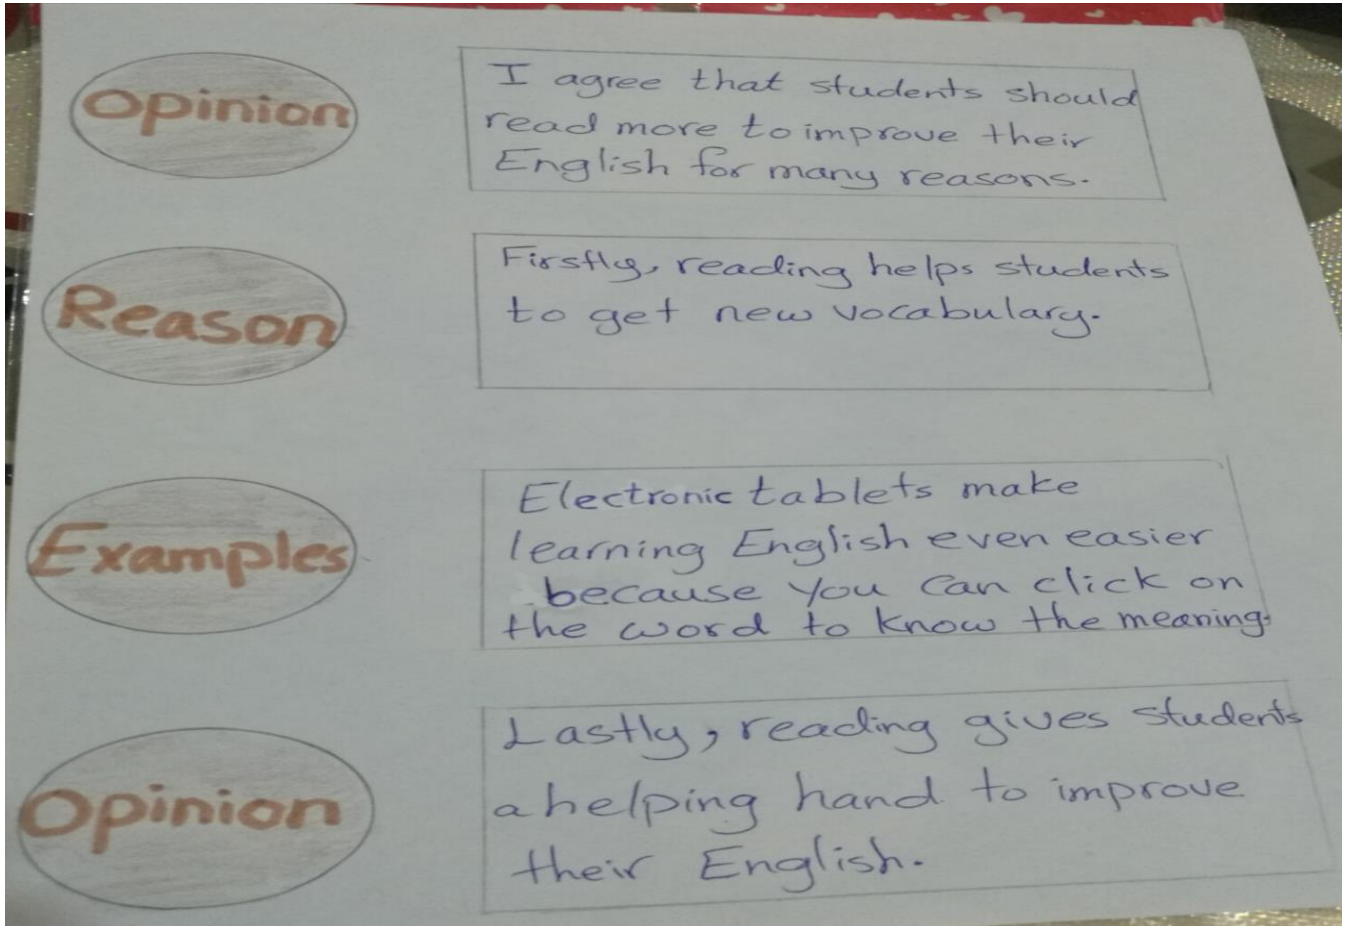 Opinion
I agree that students should
read more to improve their
English for many reasons.
Reason
Firstly, reading helps students
to get new vocabulary.
Examples
Electronic tablets make
learning English even easier
because you can click on
the word to know the meaning.
Opinion
Lastly, reading gives students
a helping hand to improve
their English.